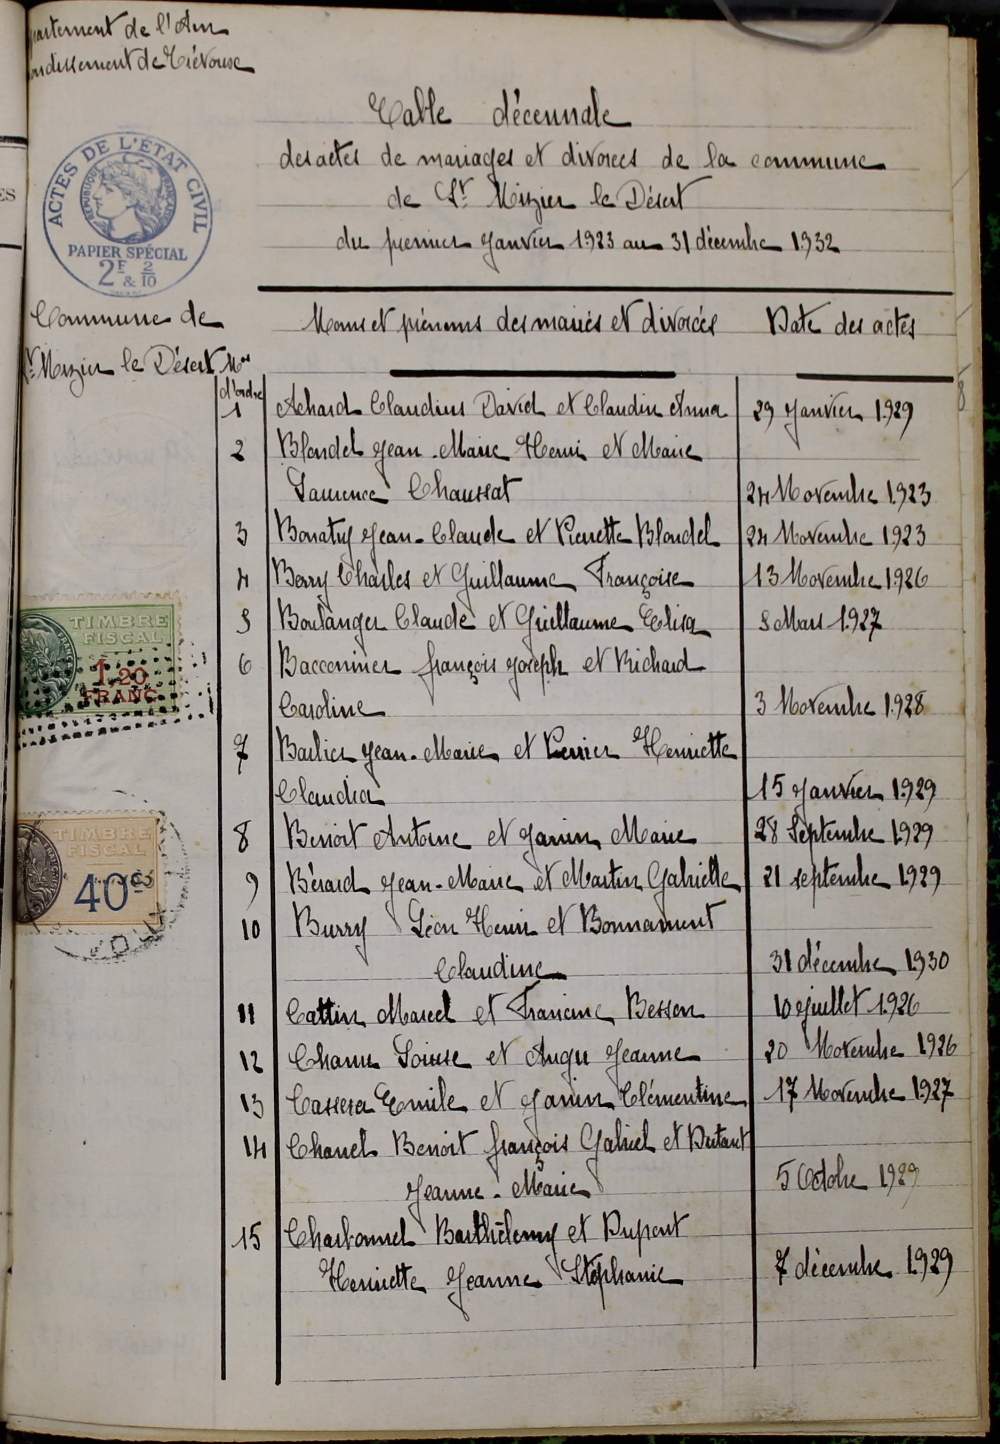 partement de l'Ain
ondissement de Trévoux
Table décennale
des actes de mariages et divorces de la commune
de St Nizier le Désert
du premier Janvier 1923 au 31 décembre 1932
ACTES DE L'ÉTAT CIVIL
RÉPUBLIQUE FRANÇAISE
PAPIER SPÉCIAL
2F & 2/10
Commune de
St Nizier le Désert
Noms et prénoms des mariés et divorcés Date des actes
Nos
d'ordre
1 Achard Claudius David et Claudin Anna 29 Janvier 1929
2 Blondel Jean-Marie Henri et Marie
Laurence Chaussat 24 Novembre 1923
3 Bonatry Jean-Claude et Pierrette Blondel 24 Novembre 1923
4 Berry Charles et Guillaume Françoise 13 Novembre 1926
5 Boulanger Claude et Guillaume Elisa 5 Mars 1927
6 Bacconnier françois Joseph et Richard
Caroline 3 Novembre 1928
7 Barlier Jean-Marie et Perrier Henriette
Claudia 15 Janvier 1929
8 Benoit Antoine et Janin Marie 28 Septembre 1929
9 Bérard Jean-Marie et Martin Gabrielle 21 septembre 1929
10 Burry Léon Henri et Bonnament
Claudine 31 décembre 1930
11 Cattin Marcel et Francine Besson 10 Juillet 1926
12 Chanu Louise et Augu Jeanne 20 Novembre 1926
13 Cassera Emile et Janin Clémentine 17 Novembre 1927
14 Chanel Benoit françois Gabriel et Dutant
Jeanne-Marie 5 Octobre 1929
15 Charbonnel Barthélemy et Dupont
Henriette Jeanne Stéphanie 7 décembre 1929
TIMBRE
FISCAL
1.20
FRANC
TIMBRE
FISCAL
40cs